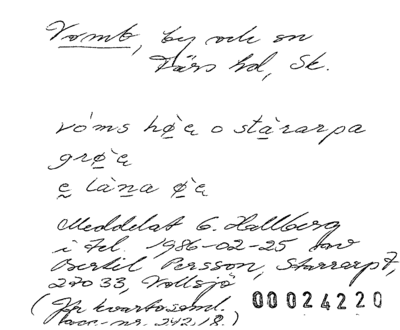 Vomb, by och sn
Färs hd, Sk.
vóms hø̀ɐ o stàrarpa
grø̀ɐ
ḙ làna ø̀ɐ
Meddelat G. Hallberg
i tel. 1986-02-25 av
Bertil Persson, Starrarp 7,
270 33, Vollsjö
(Jfr kvartosaml.
acc.-nr. 242,18.)
00024220